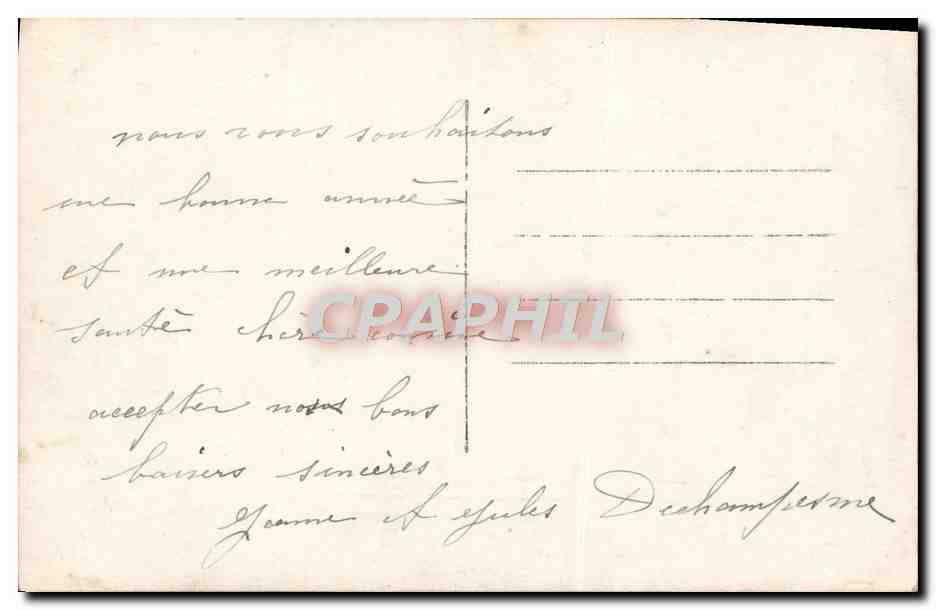 nous vous souhaitons
une bonne année
et une meilleure
santé chère cousine
CPAPHIL
accepter nos bons
baisers sincères
Jeanne et Jules Dechampesme